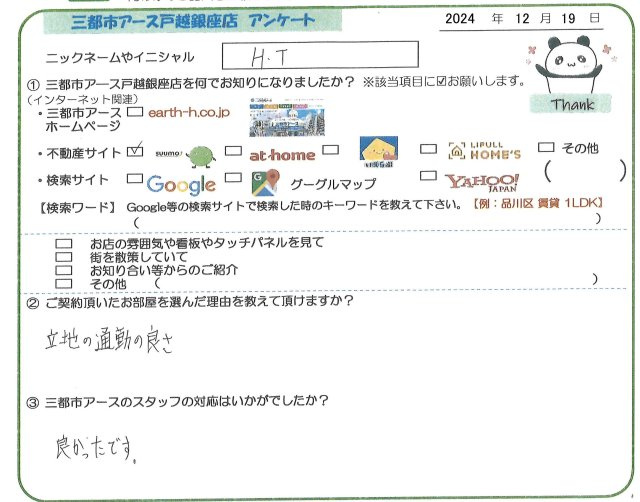 三都市アース戸越銀座店 アンケート
2024 年 12 月 19 日
ニックネームやイニシャル H.T
① 三都市アース戸越銀座店を何でお知りになりましたか？ ※該当項目に☑お願いします。
(インターネット関連)
・三都市アース □ earth-h.co.jp
ホームページ
Thank
・不動産サイト ☑ suumo □ at home □ □ LIFULL HOME'S □ その他
・検索サイト □ Google □ グーグルマップ □ YAHOO! JAPAN ( )
【検索ワード】 Google等の検索サイトで検索した時のキーワードを教えて下さい。【例：品川区 賃貸 1LDK】
( )
□ お店の雰囲気や看板やタッチパネルを見て
□ 街を散策していて
□ お知り合い等からのご紹介
□ その他 ( )
② ご契約頂いたお部屋を選んだ理由を教えて頂けますか？
立地の通勤の良さ
③ 三都市アースのスタッフの対応はいかがでしたか？
良かったです。